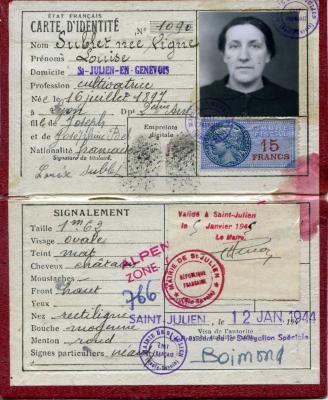 ÉTAT FRANÇAIS
CARTE D'IDENTITÉ
N° 1090
Nom Sublet née Ligne
Prénom Louise
Domicile ST-JULIEN-EN-GENEVOIS
Profession cultivatrice
Né le 16 juillet 1897
à Lyon Dpt
fil de Joseph
et de
Nationalité française
Signature du titulaire,
Louise Sublet
Empreinte digitale
TIMBRE FISCAL
15
FRANCS
SIGNALEMENT
Taille 1m 63
Visage ovale
Teint mat
Cheveux châtain
Moustaches
Front haut
Yeux
Nez rectiligne
Bouche moyenne
Menton rond
Signes particuliers, néant
ALPEN
ZONE
766
Validé à Saint-Julien
le 5 Janvier 194
Le Maire,
MAIRIE DE ST JULIEN
RÉPUBLIQUE
FRANÇAISE
SAINT-JULIEN 12 JAN. 1944
Visa de l'autorité
Le Président de la Délégation Spéciale
Boimond
MAIRIE DE ST JULIEN
ÉTAT
FRANÇAIS